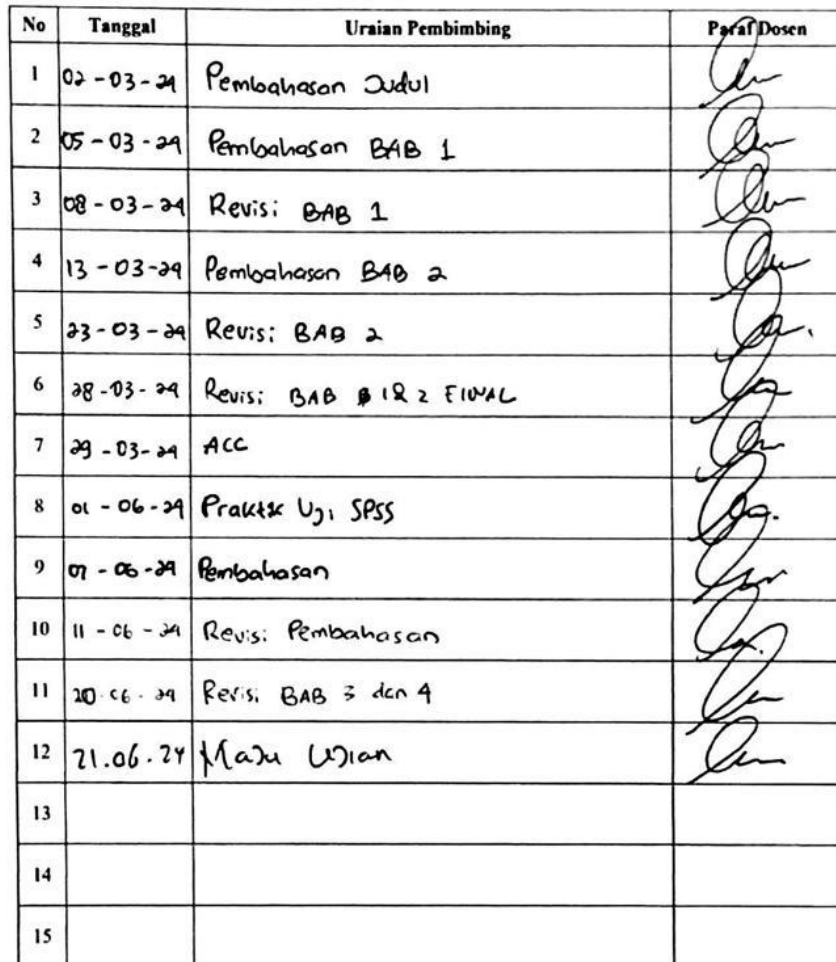 No Tanggal Uraian Pembimbing Paraf Dosen
1 02-03-24 Pembahasan Judul
2 05-03-24 Pembahasan BAB 1
3 08-03-24 Revisi BAB 1
4 13-03-24 Pembahasan BAB 2
5 23-03-24 Revisi BAB 2
6 28-03-24 Revisi BAB 1 & 2 FINAL
7 29-03-24 ACC
8 01-06-24 Praktik Uji SPSS
9 07-06-24 Pembahasan
10 11-06-24 Revisi Pembahasan
11 20.06.24 Revisi BAB 3 dan 4
12 21.06.24 Maju Ujian
13
14
15